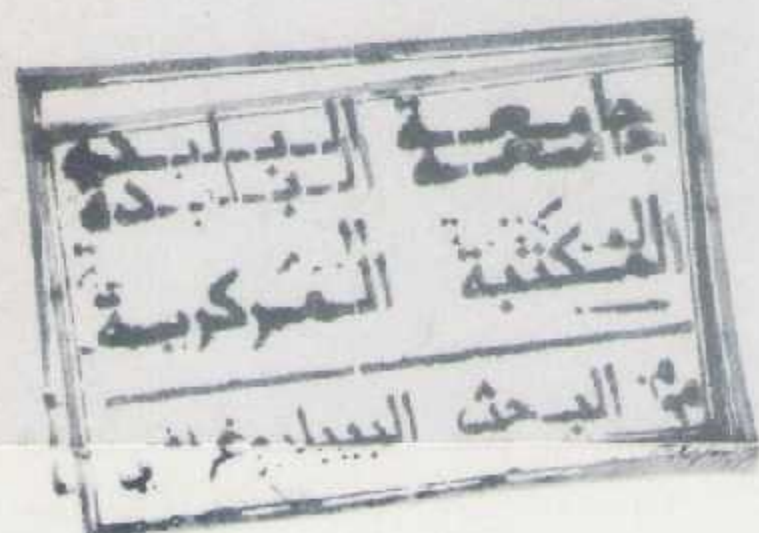 جامعة البليدة
المكتبة المركزية
البحث الببليوغرافي